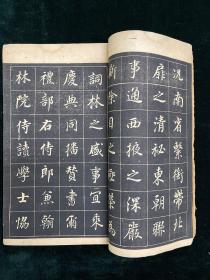 況南省繫銜帶北
扉之清秘東朝聯
事通西掖之深嚴
之榮爲
詞林之盛事宜乘
慶典同播贊書爾
禮部右侍郎兼翰
林院侍讀學士協